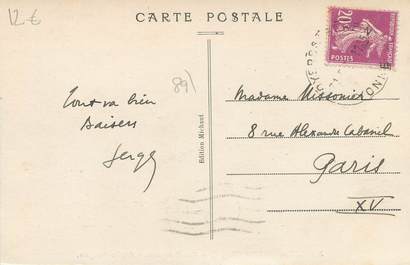 12€
CARTE POSTALE
20c
POSTES
89
Tout va bien
Baisers
Serge
Edition Michaut
Madame Missonier
8 rue Alexandre Cabanel
Paris
XV